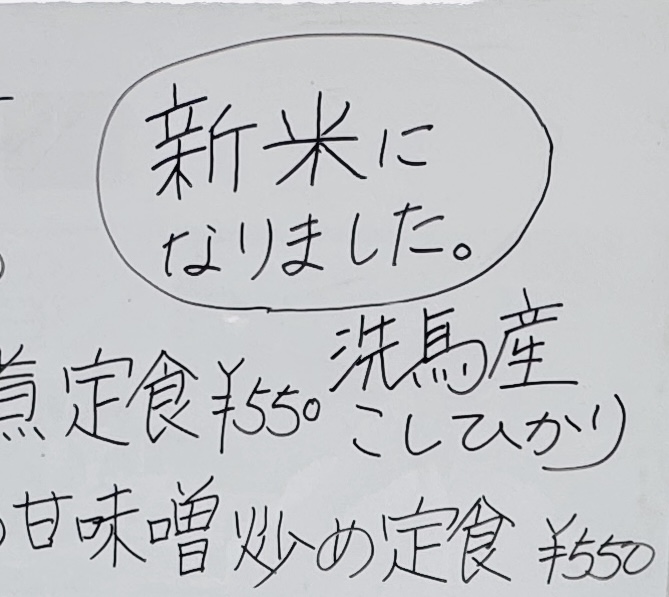 新米に
なりました。
洗馬産
こしひかり
煮定食 ¥550
甘味噌炒め定食 ¥550